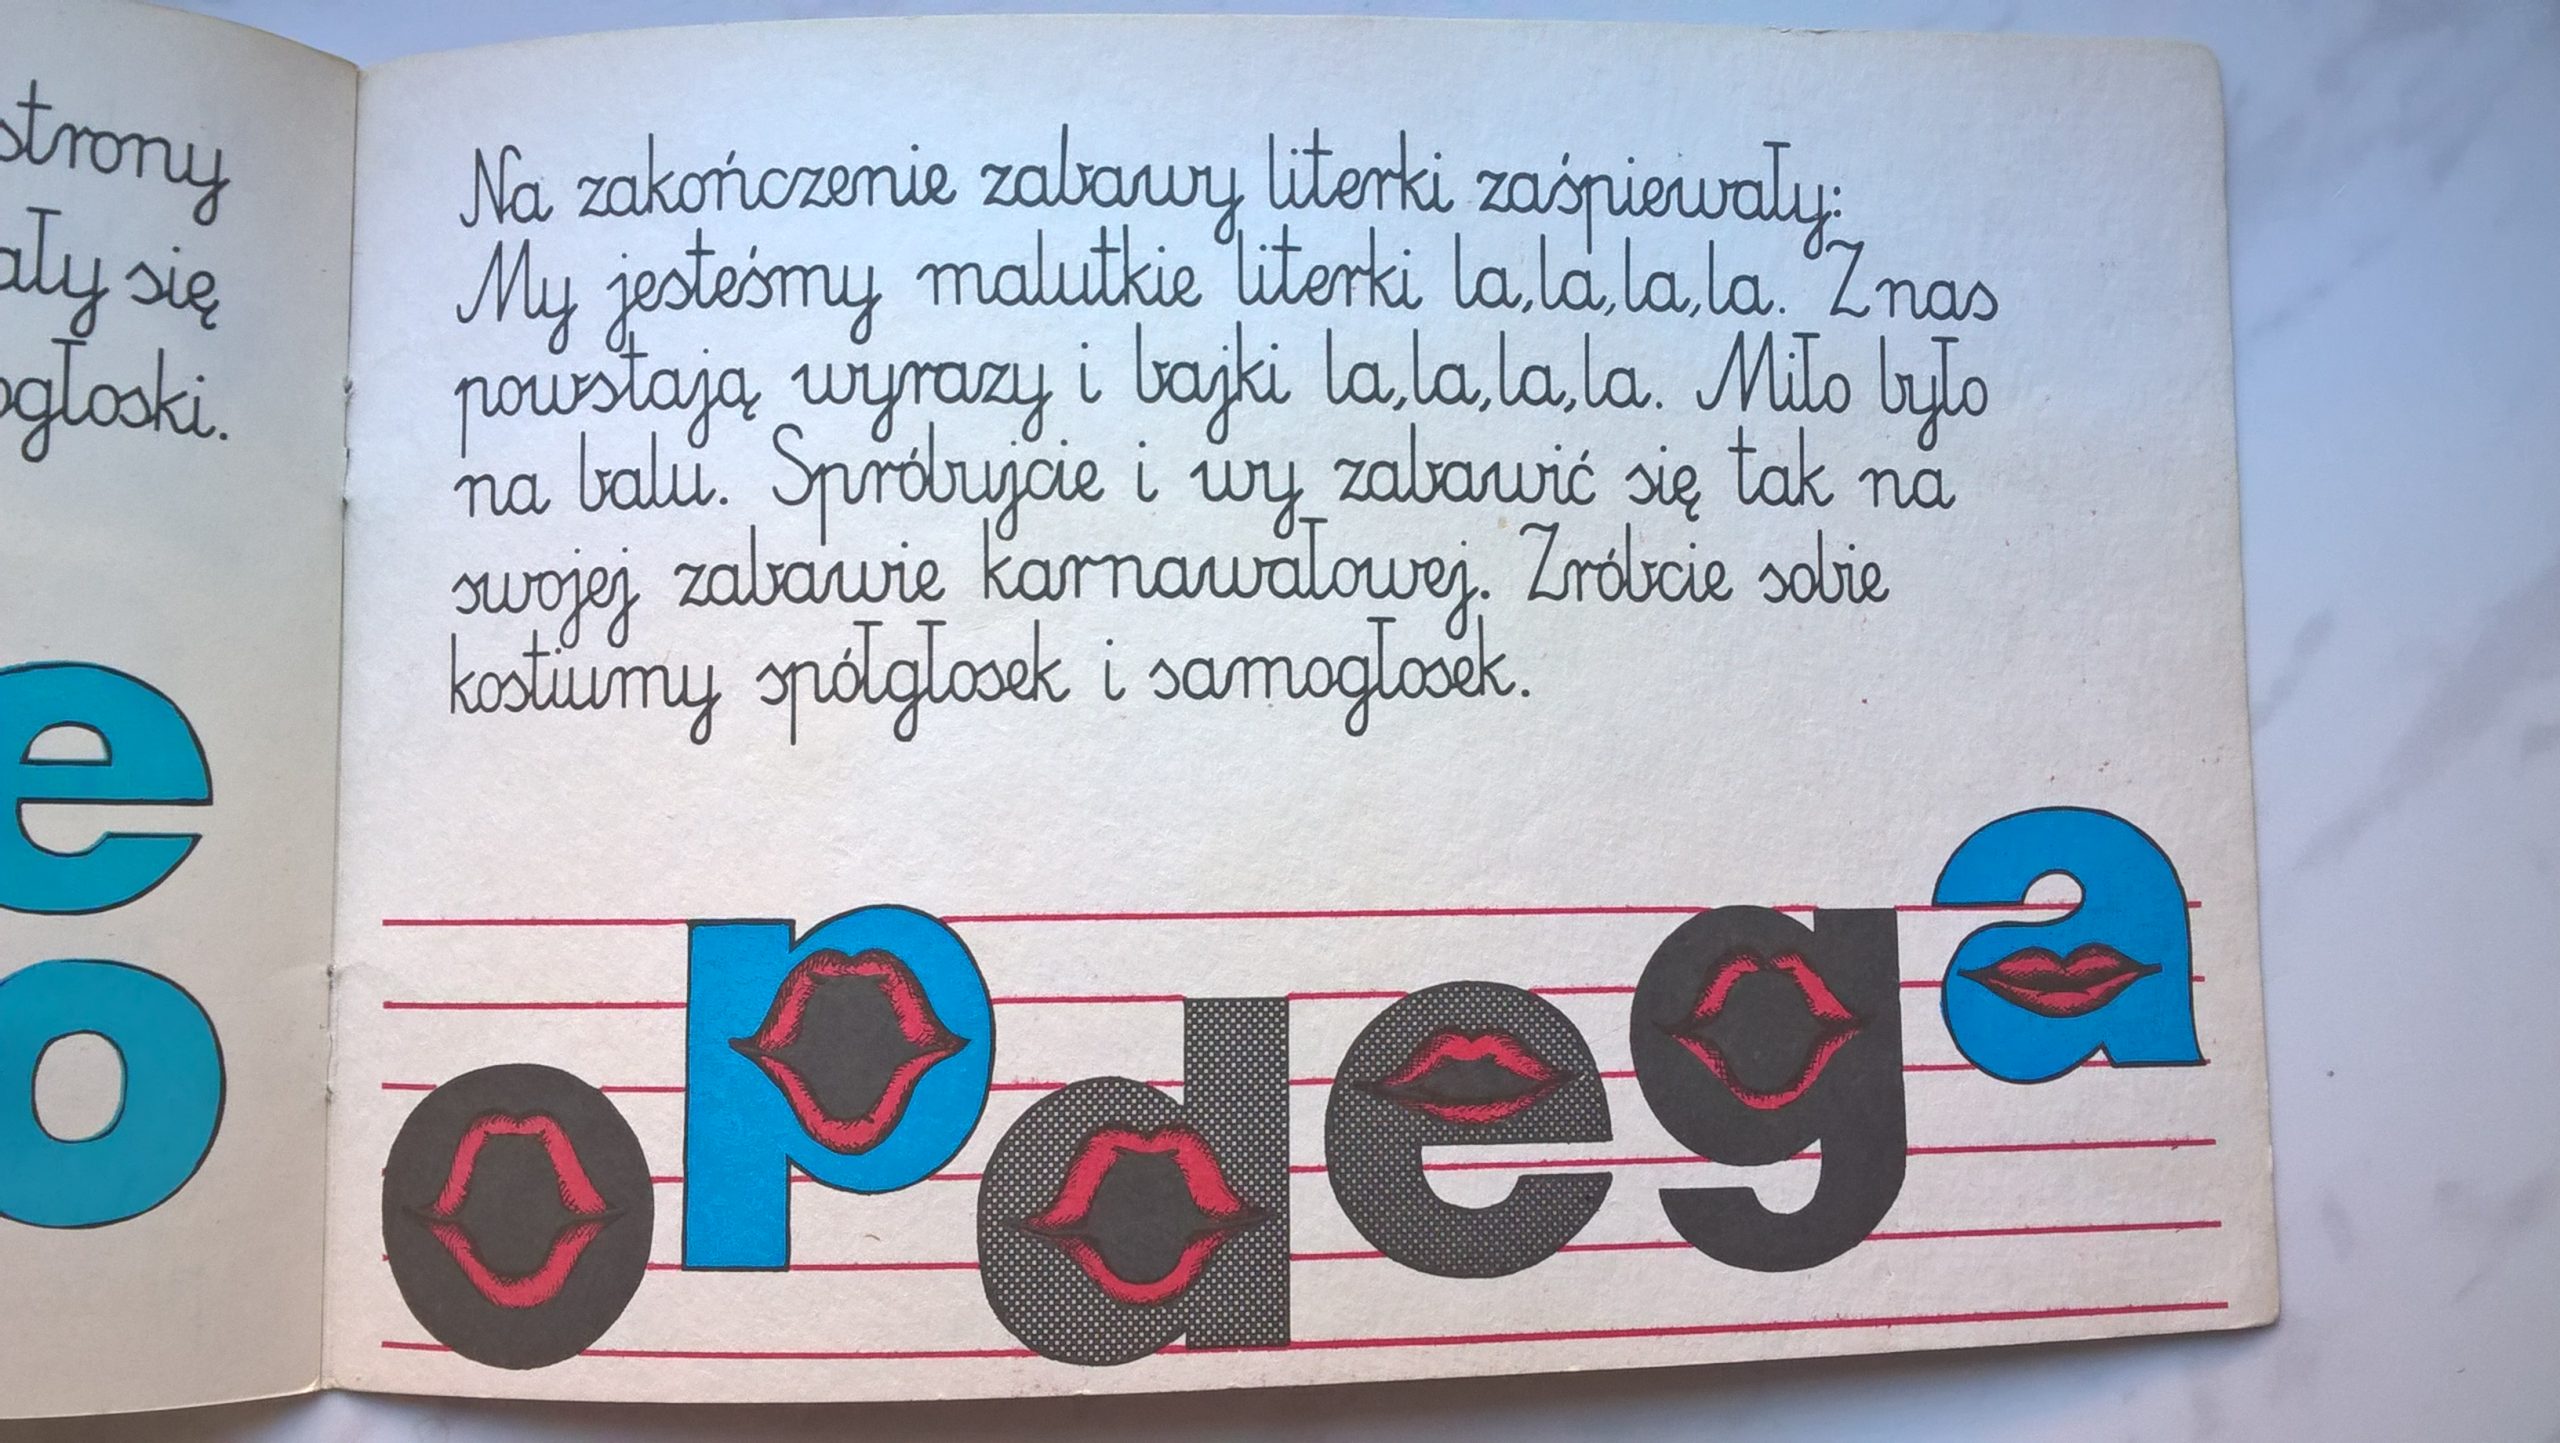 strony
się
e
o
Na zakończenie zabawy literki zaśpiewały:
My jesteśmy malutkie literki la, la, la, la. Z nas
powstają wyrazy i bajki la, la, la, la. Miło było
na balu. Spróbujcie i wy zabawić się tak na
swojej zabawie karnawałowej. Zróbcie sobie
kostiumy spółgłosek i samogłosek.
o p d e g a